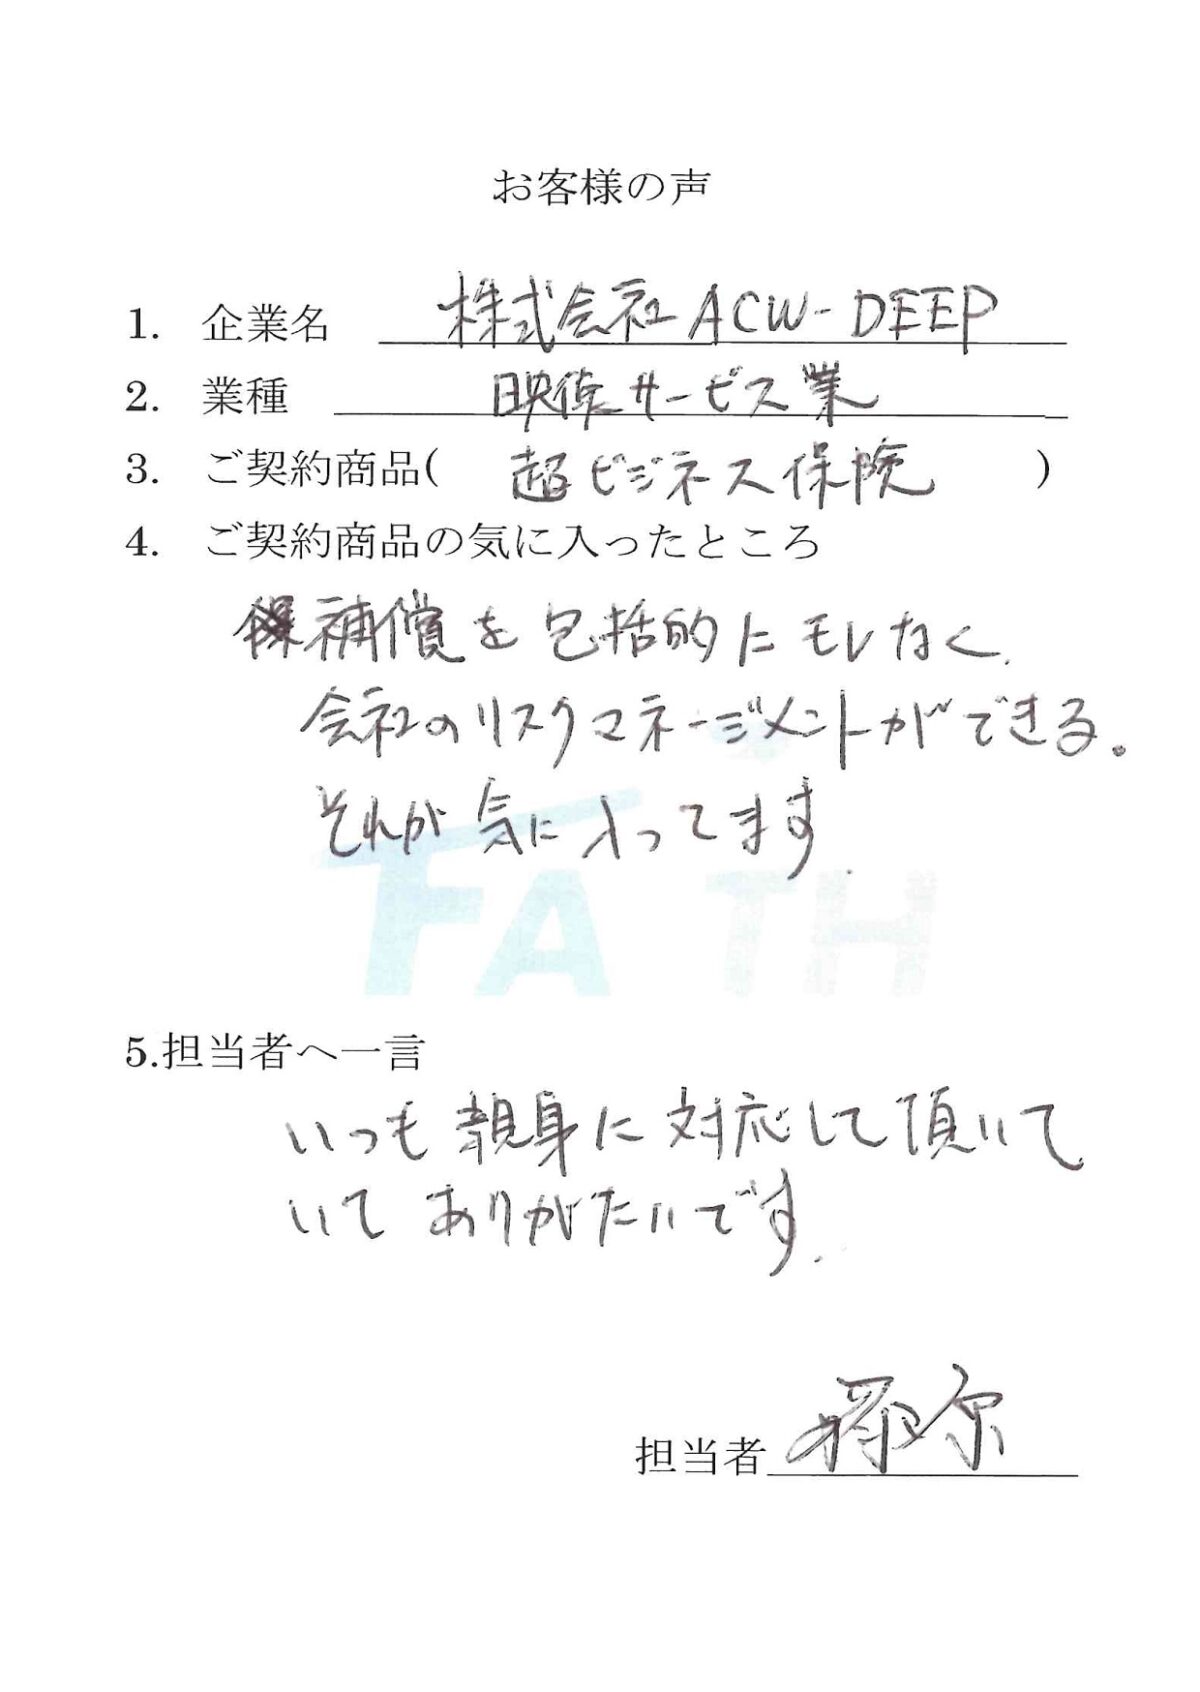 お客様の声
1. 企業名 株式会社ACW-DEEP
2. 業種 映像サービス業
3. ご契約商品( 超ビジネス保険 )
4. ご契約商品の気に入ったところ
補償を包括的にモレなく、
会社のリスクマネージメントができる。
それが気に入ってます。
FAITH
5.担当者へ一言
いつも親身に対応して頂いて
いてありがたいです。
担当者